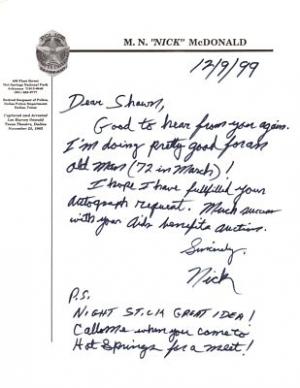 M. N. "NICK" McDONALD
Hot Springs National Park
Retired Sergeant of Police
Dallas Police Department
Dallas, Texas
Captured and Arrested
Lee Harvey Oswald
Texas Theatre, Dallas
November 22, 1963
12/9/99
Dear Shawn,
Good to hear from you again.
I'm doing pretty good for an
old man (72 in March)!
I hope I have fulfilled your
autograph request. Much success
with your Aids benefits auction.
Sincerely,
Nick
P.S.
NIGHT STICK GREAT IDEA!
Call me when you come to
Hot Springs for a meet!